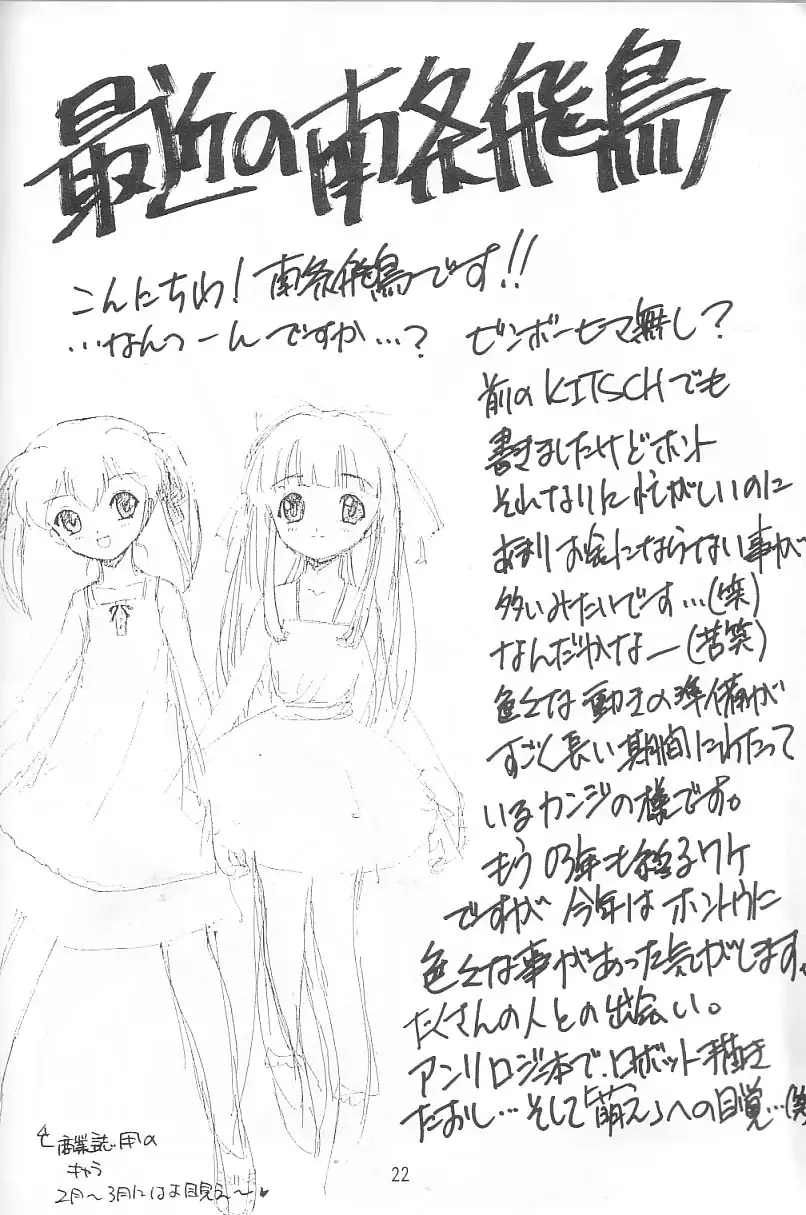 最近の南条飛鳥
こんにちわ!南条飛鳥です!!
…なんつーんですか…? ビンボーヒマ無し?
前のKITSCHでも
書きましたけどホント
それなりに忙がしいのに
あまりお金にならない事が
多いみたいです…(笑)
なんだかなー(苦笑)
色々な動きの準備が
すごく長い期間にわたって
いるカンジの様です。
もう03年も終るワケ
ですが今年はホントウに
色々な事があった気がします。
たくさんの人との出会い。
アンソロジー本で、ロボット描き
たおし…そして「萌え」への目覚…(笑
商業誌用の
キャラ
2月〜3月にはお目見え〜
22